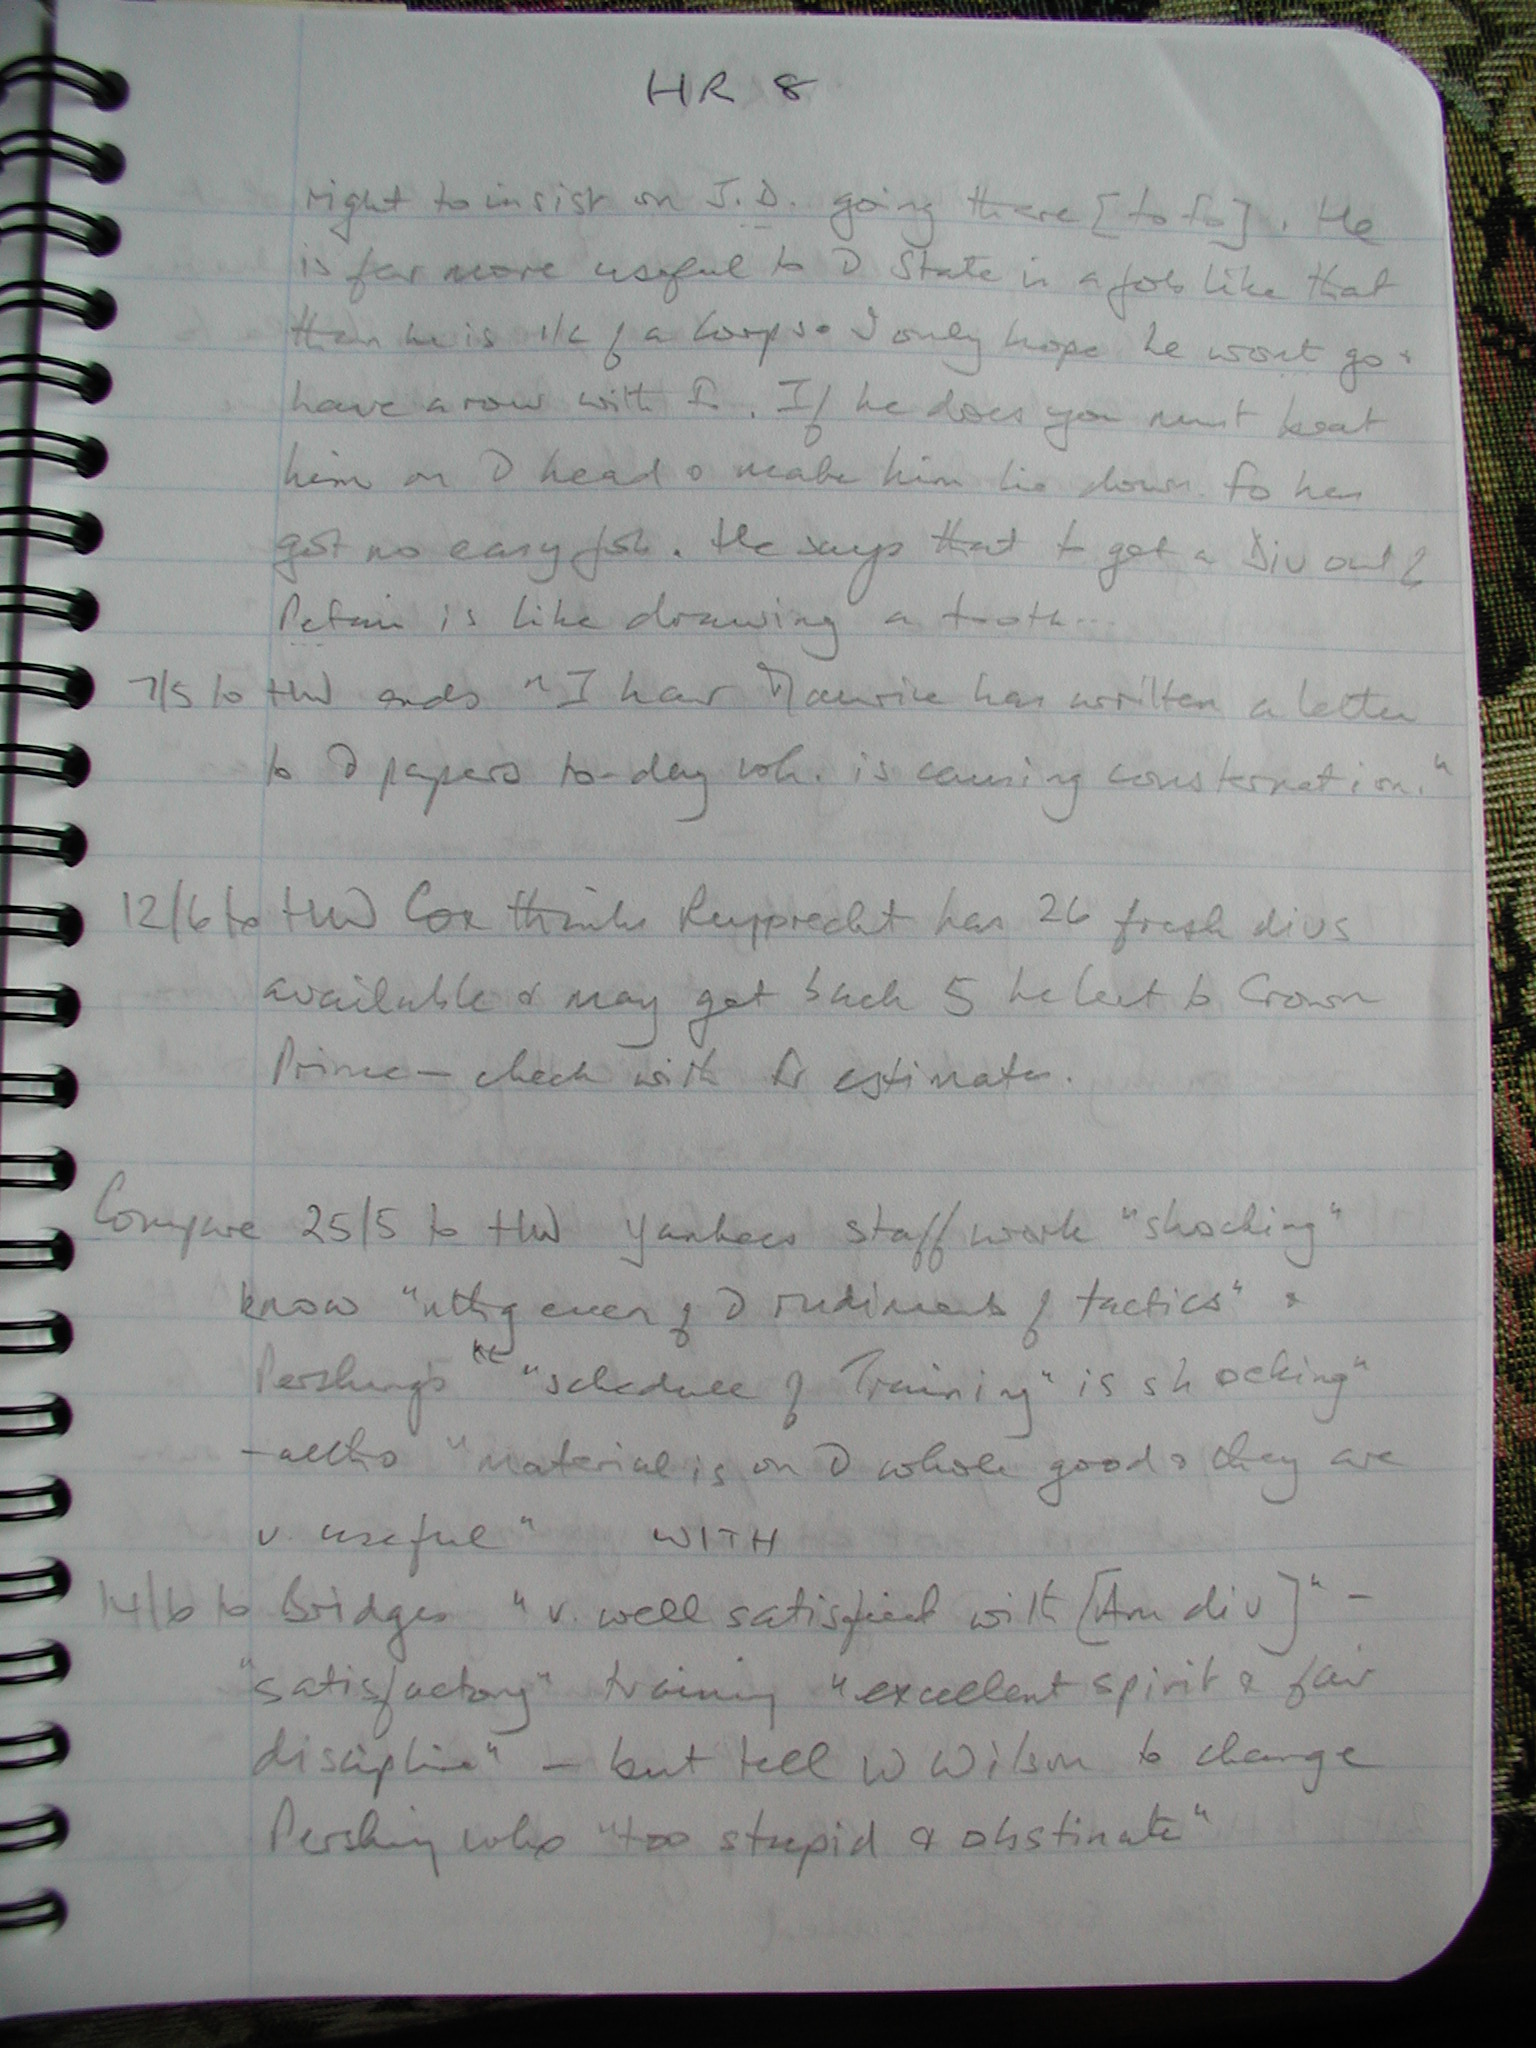 HR 8
right to insist on J.D. going there [to Fo]. He
is far more useful to D State in a job like that
than he is i/c of a Corps. I only hope he wont go &
have a row with F. If he does you must beat
him on D head & make him lie down. Fo has
got no easy job. He says that to get a Div out of
Petain is like drawing a tooth...
7/5 to HW ends "I hear Maurice has written a letter
to D papers to-day wh. is causing consternation."
12/6 to HW Cox thinks Rupprecht has 26 fresh divs
available & may get back 5 he lent to Crown
Prince – check with Fr estimates.
Compare 25/5 to HW Yankees staff work "shocking"
know "nthg even of D rudiments of tactics" &
Pershing's "schedule of Training" is shocking"
– altho "material is on D whole good & they are
v. useful" WITH
14/6 to Bridges "v. well satisfied with [Am div]" –
"satisfactory" training "excellent spirit & fair
discipline" – but tell W Wilson to change
Pershing who "too stupid & obstinate"